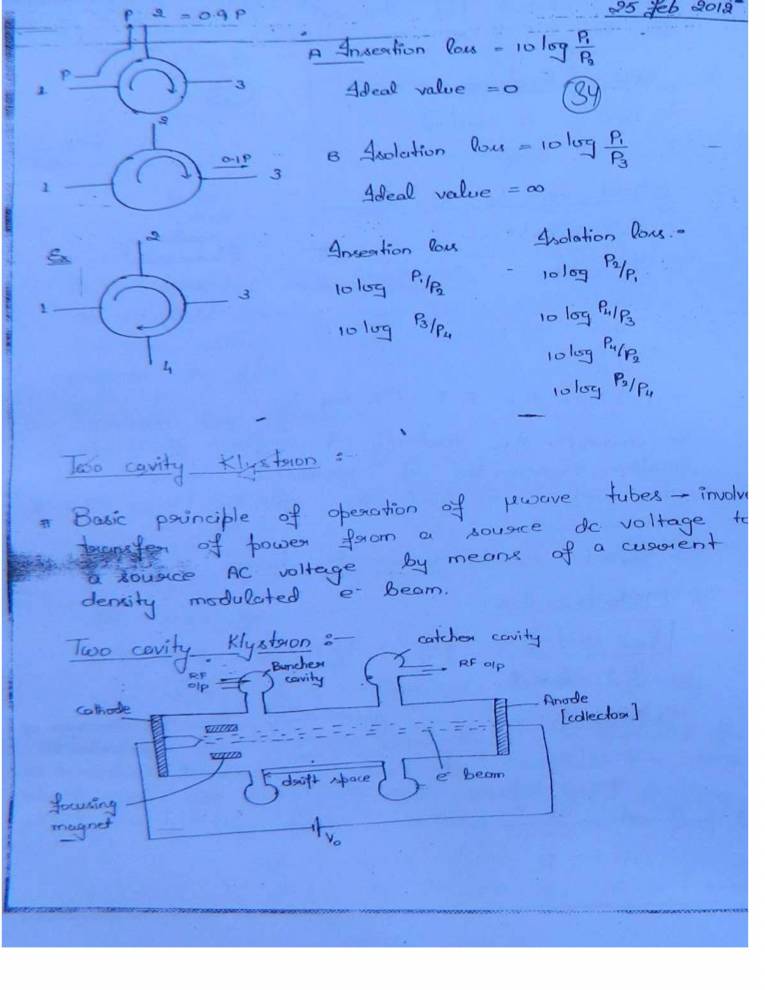 25 Feb 2012
P 2 = 0.9P
P
1
3
A Insertion loss = 10 log P1/P2
Ideal value = 0
34
2
1
0.1P
3
B Isolation loss = 10 log P1/P3
Ideal value = ∞
Ex
2
1
3
4
Insertion loss
10 log P1/P2
10 log P3/P4
Isolation loss:-
10 log P2/P1
10 log P4/P3
10 log P4/P2
10 log P2/P4
Two cavity Klystron :-
Basic principle of operation of μwave tubes → involve
transfer of power from a source dc voltage to
a source AC voltage by means of a current
density modulated e- beam.
Two cavity Klystron :-
RF
o/p
Buncher
cavity
catcher cavity
RF o/p
Cathode
Anode
[collector]
drift space
e- beam
focusing
magnet
V0